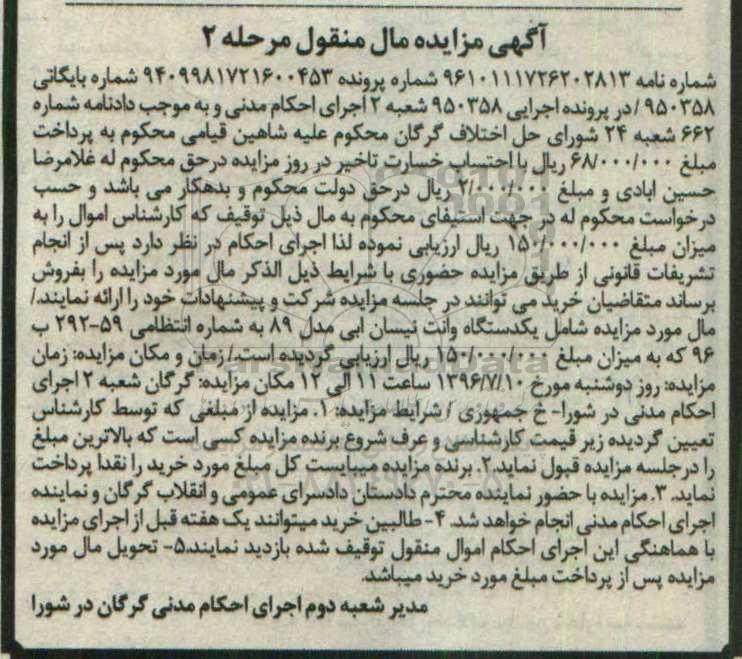 آگهی مزایده مال منقول مرحله ۲
شماره نامه ۹۶۱۰۱۱۱۷۲۶۲۰۲۸۱۳ شماره پرونده ۹۴۰۹۹۸۱۷۲۱۶۰۰۴۵۳ شماره بایگانی
۹۵۰۳۵۸ / در پرونده اجرایی ۹۵۰۳۵۸ شعبه ۲ اجرای احکام مدنی و به موجب دادنامه شماره
۶۶۲ شعبه ۲۴ شورای حل اختلاف گرگان محکوم علیه شاهین قیامی محکوم به پرداخت
مبلغ ۶۸/۰۰۰/۰۰۰ ریال با احتساب خسارت تاخیر در روز مزایده درحق محکوم له غلامرضا
حسین ابادی و مبلغ ۲/۰۰۰/۰۰۰ ریال درحق دولت محکوم و بدهکار می باشد و حسب
درخواست محکوم له در جهت استیفای محکوم به مال ذیل توقیف که کارشناس اموال را به
میزان مبلغ ۱۵۰/۰۰۰/۰۰۰ ریال ارزیابی نموده لذا اجرای احکام در نظر دارد پس از انجام
تشریفات قانونی از طریق مزایده حضوری با شرایط ذیل الذکر مال مورد مزایده را بفروش
برساند متقاضیان خرید می توانند در جلسه مزایده شرکت و پیشنهادات خود را ارائه نمایند./
مال مورد مزایده شامل یکدستگاه وانت نیسان ابی مدل ۸۹ به شماره انتظامی ۵۹-۲۹۲ ب
۹۶ که به میزان مبلغ ۱۵۰/۰۰۰/۰۰۰ ریال ارزیابی گردیده است./ زمان و مکان مزایده: زمان
مزایده: روز دوشنبه مورخ ۱۳۹۶/۷/۱۰ ساعت ۱۱ الی ۱۲ مکان مزایده: گرگان شعبه ۲ اجرای
احکام مدنی در شورا- خ جمهوری / شرایط مزایده: ۱. مزایده از مبلغی که توسط کارشناس
تعیین گردیده زیر قیمت کارشناسی و عرف شروع برنده مزایده کسی است که بالاترین مبلغ
را درجلسه مزایده قبول نماید.۲. برنده مزایده میبایست کل مبلغ مورد خرید را نقدا پرداخت
نماید. ۳. مزایده با حضور نماینده محترم دادستان دادسرای عمومی و انقلاب گرگان و نماینده
اجرای احکام مدنی انجام خواهد شد. ۴- طالبین خرید میتوانند یک هفته قبل از اجرای مزایده
با هماهنگی این اجرای احکام اموال منقول توقیف شده بازدید نمایند.۵- تحویل مال مورد
مزایده پس از پرداخت مبلغ مورد خرید میباشد.
مدیر شعبه دوم اجرای احکام مدنی گرگان در شورا